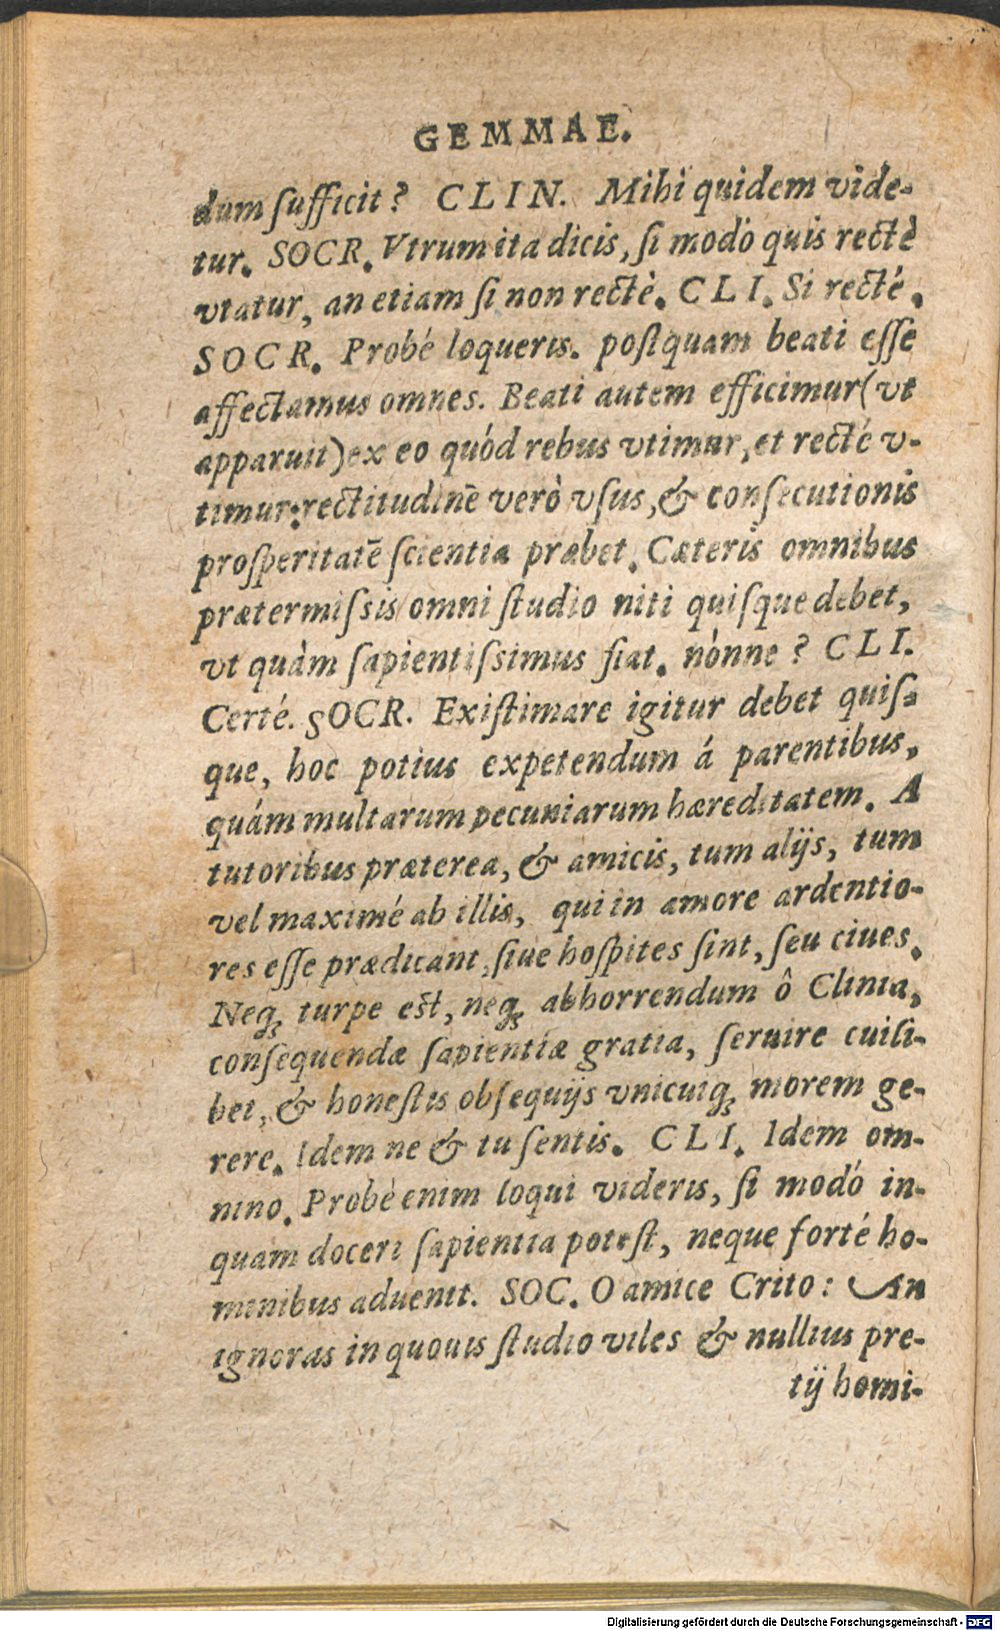 GEMMAE.
dum ſufficit? CLIN. Mihi quidem vide-
tur. SOCR. Vtrum ita dicis, ſi modò quis rectè
vtatur, an etiam ſi non rectè. CLI. Si recté.
SOCR. Probé loqueris. poſtquam beati eſſe
affectamus omnes. Beati autem efficimur (vt
apparuit) ex eo quód rebus vtimur, et recté v-
timur: rectitudinē verò vſus, & conſecutionis
proſperitatē ſcientia præbet. Cæteris omnibus
prætermiſsis omni ſtudio niti quiſque debet,
vt quàm ſapientiſsimus fiat. nónne? CLI.
Certé. SOCR. Exiſtimare igitur debet quiſ-
que, hoc potius expetendum á parentibus,
quám multarum pecuniarum hæreditatem. A
tutoribus præterea, & amicis, tum alijs, tum
vel maximé ab illis, qui in amore ardentio-
res eſſe prædicant, ſiue hoſpites ſint, ſeu ciues.
Neq; turpe eſt, neq; abhorrendum ô Clinia,
conſequendæ ſapientiæ gratia, ſeruire cuili-
bet, & honeſtis obſequijs vnicuiq; morem ge-
rere. Idem ne & tu ſentis. CLI. Idem om-
nino. Probè enim loqui videris, ſi modó in-
quam doceri ſapientia poteſt, neque forté ho-
minibus aduenit. SOC. O amice Crito: An
ignoras in quouis ſtudio viles & nullius pre-
tij homi-
Digitalisierung gefördert durch die Deutsche Forschungsgemeinschaft - DFG